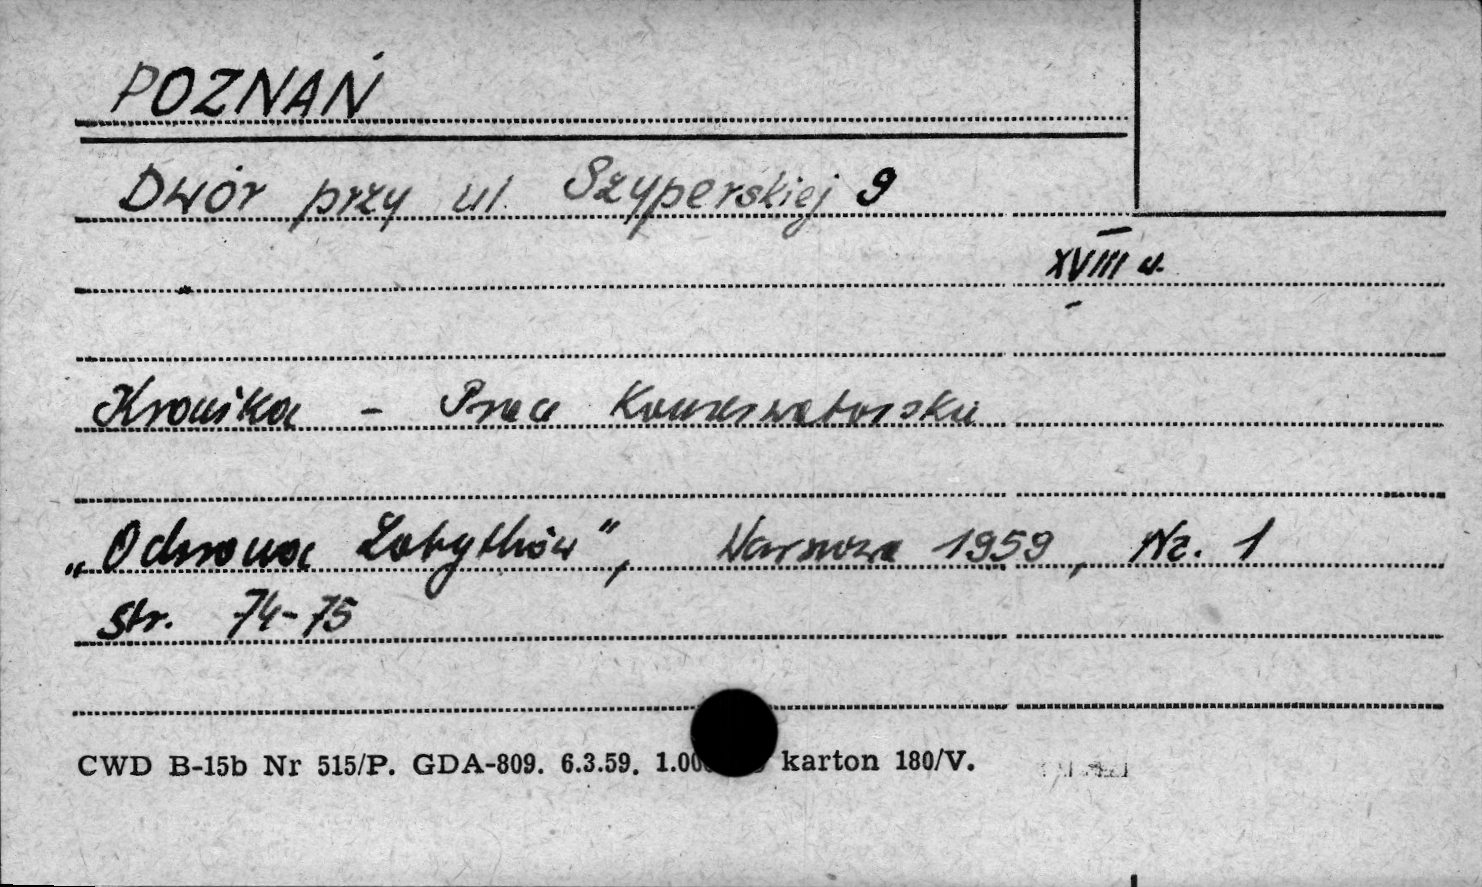 POZNAŃ
Dwór przy ul. Szyperskiej 9
XVIII w.
Kronika - Praca Konserwatorska
„Ochrona Zabytków", Warszawa 1959, Nr. 1
str. 74-75
CWD B-15b Nr 515/P. GDA-809. 6.3.59. 1.00 karton 180/V.